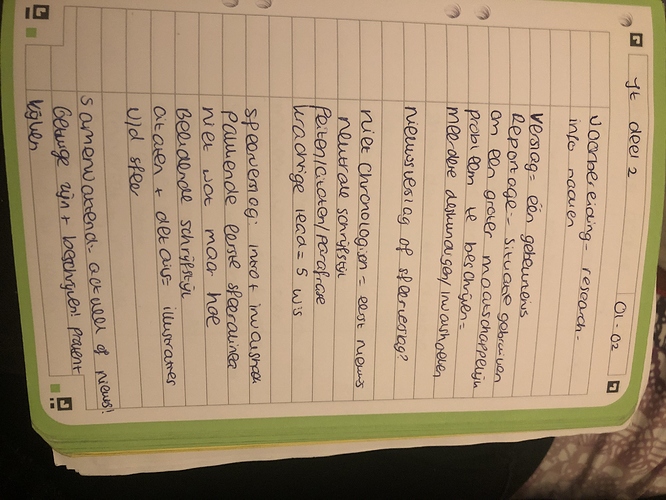 Jt deel 2
01-02
Voorbereiding = research -
info
Verslag = één gebeurtenis
Reportage = situatie gebruiken
om een groter maatschappelijk
probleem te beschrijven =
meerdere deskundigen/invalshoeken
nieuwsverslag of sfeerverslag?
niet chronologisch = eerst nieuws
neutrale schrijfstijl
Feiten/citaten/parafrase
krachtige lead = 5 w's
sfeerverslag: intro + invalshoek
pakkende eerste sfeeralinea
niet wat maar hoe
Beeldende schrijfstijl
citaten + details = illustraties
v/d sfeer
samenvattend: actueel of nieuws!
Getuige zijn + beschrijven! Publiek
krijgen